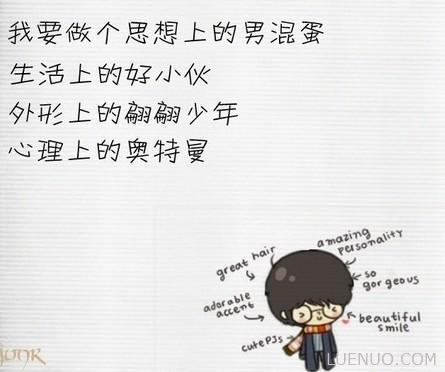 我要做个思想上的男混蛋
生活上的好小伙
外形上的翩翩少年
心理上的奥特曼
great hair
amazing
personality
so
gorgeous
adorable
accent
beautiful
smile
cute PJs
LUENUO.COM